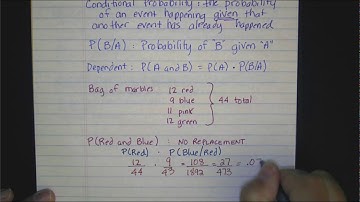 Conditional Probability: the probability
of an event happening given that
another event has already happened
P(B/A) : Probability of "B" given "A"
Dependent: P(A and B) = P(A) · P(B/A)
Bag of marbles 12 red
9 blue
11 pink
12 green
44 total
P(Red and Blue) : NO REPLACEMENT
P(Red) · P(Blue/Red)
12/44 · 9/43 = 108/1892 = 27/473 = .0